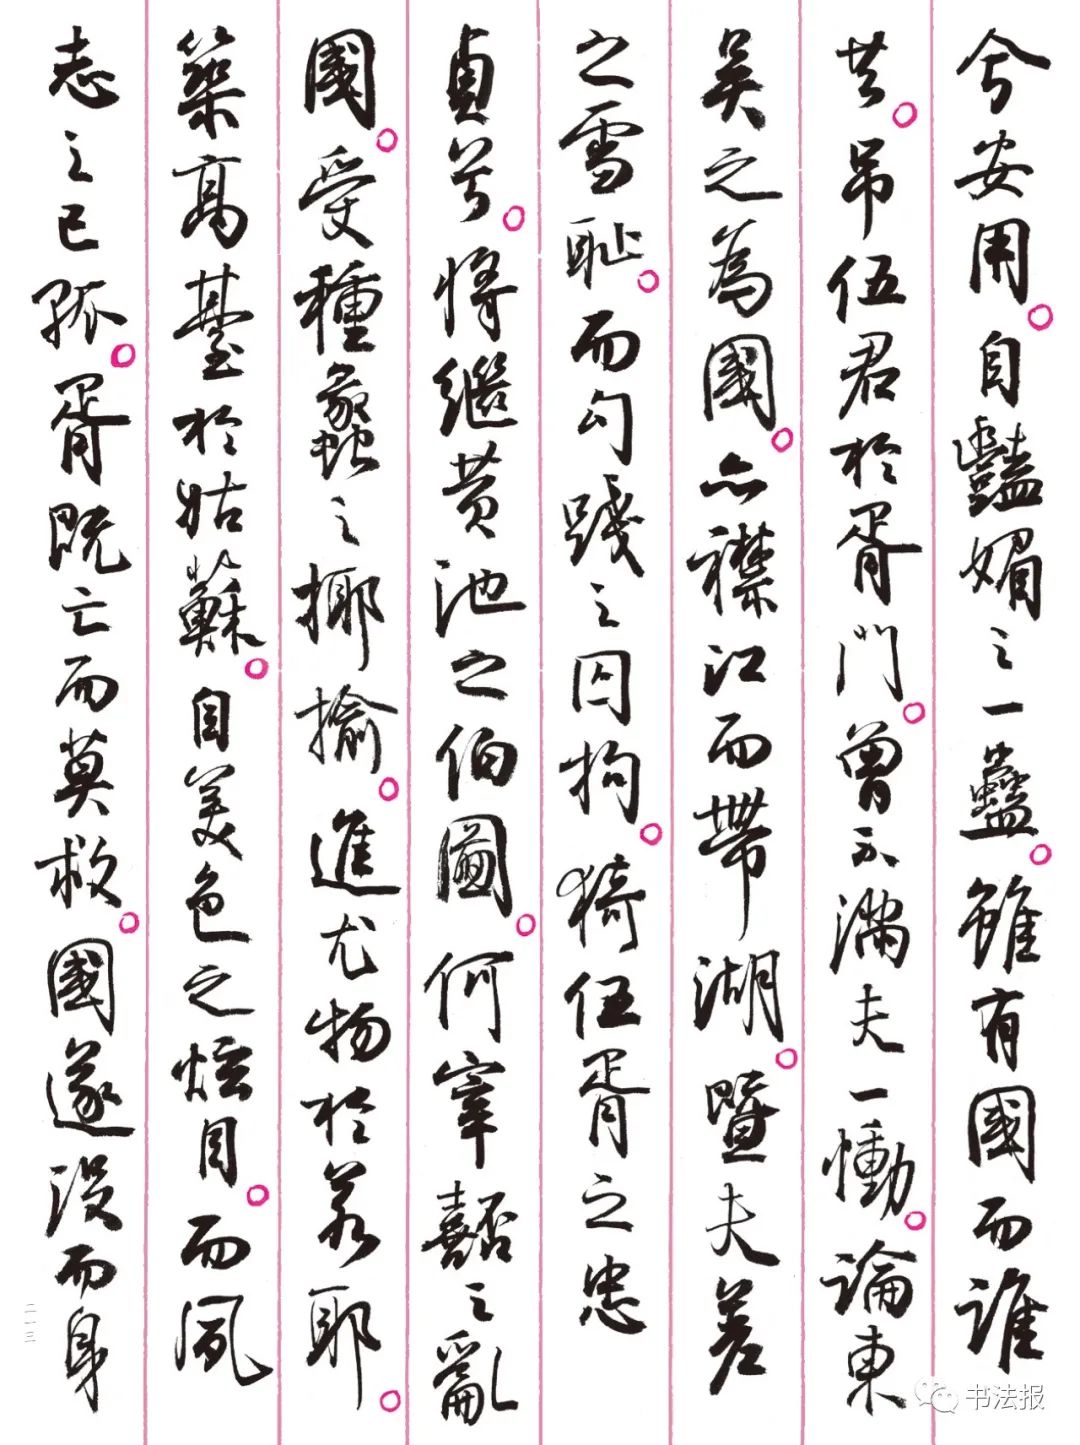 兮安用。自豔媚之一蠱。雖有國而誰
共。吊伍君於胥門。曾不滿夫一慟。論東
吴之為國。亦襟江而帶湖。暨夫差
之雪恥。而勾踐之囚拘。猗伍胥之忠
貞兮。將繼黄池之伯圖。何宰嚭之亂
國。受種蠡之揶揄。進尤物於若耶。
築高臺於姑蘇。自美色之炫目。而夙
志之已孤。胥既亡而莫救。國遂没而身
二一三
书法报